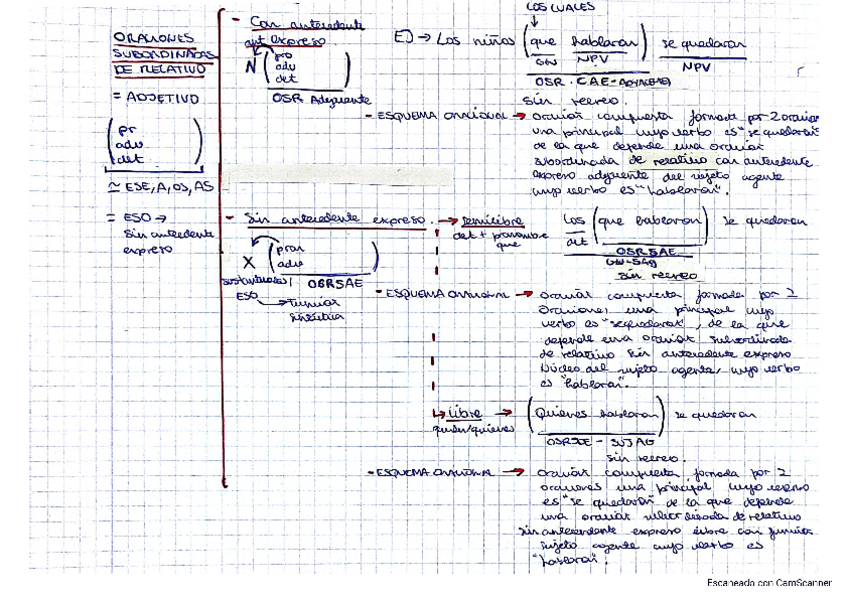 ORACIONES
SUBORDINADAS
DE RELATIVO
= ADJETIVO
pr
adv
det
≃ ESE, A, OS, AS
= ESO →
sin antecedente
expreso
- Con antecedente
expreso
N (pro
adv
det)
OSR Adyacente
LOS CUALES
EJ → Los niños (que hablaron) se quedaron
NPV
NPV
OSR
sin recreo.
- ESQUEMA ORACIONAL → oración compuesta formada por 2 oraciones
una principal cuyo verbo es "se quedaron"
de la que depende una oración
subordinada de relativo con antecedente
expreso adyacente del sujeto agente
cuyo verbo es "hablaron".
- Sin antecedente expreso. → Semilibre
det + pronombre
que
X (pron
adv)
OSRSAE
ESO → Función
sintáctica
Los (que hablaron) se quedaron
det
OSRSAE
sin recreo
- ESQUEMA ORACIONAL → oración compuesta formada por 2
oraciones, una principal cuyo
verbo es "se quedaron", de la que
depende una oración subordinada
de relativo sin antecedente expreso
núcleo del sujeto agente, cuyo verbo
es "hablaron".
↳ Libre →
quien/quienes
(Quienes hablaron) se quedaron
sin recreo.
- ESQUEMA ORACIONAL → oración compuesta formada por 2
oraciones una principal cuyo verbo
es "se quedaron" de la que depende
una oración subordinada de relativo
sin antecedente expreso libre con función
sujeto agente cuyo verbo es
"hablaron".
Escaneado con CamScanner